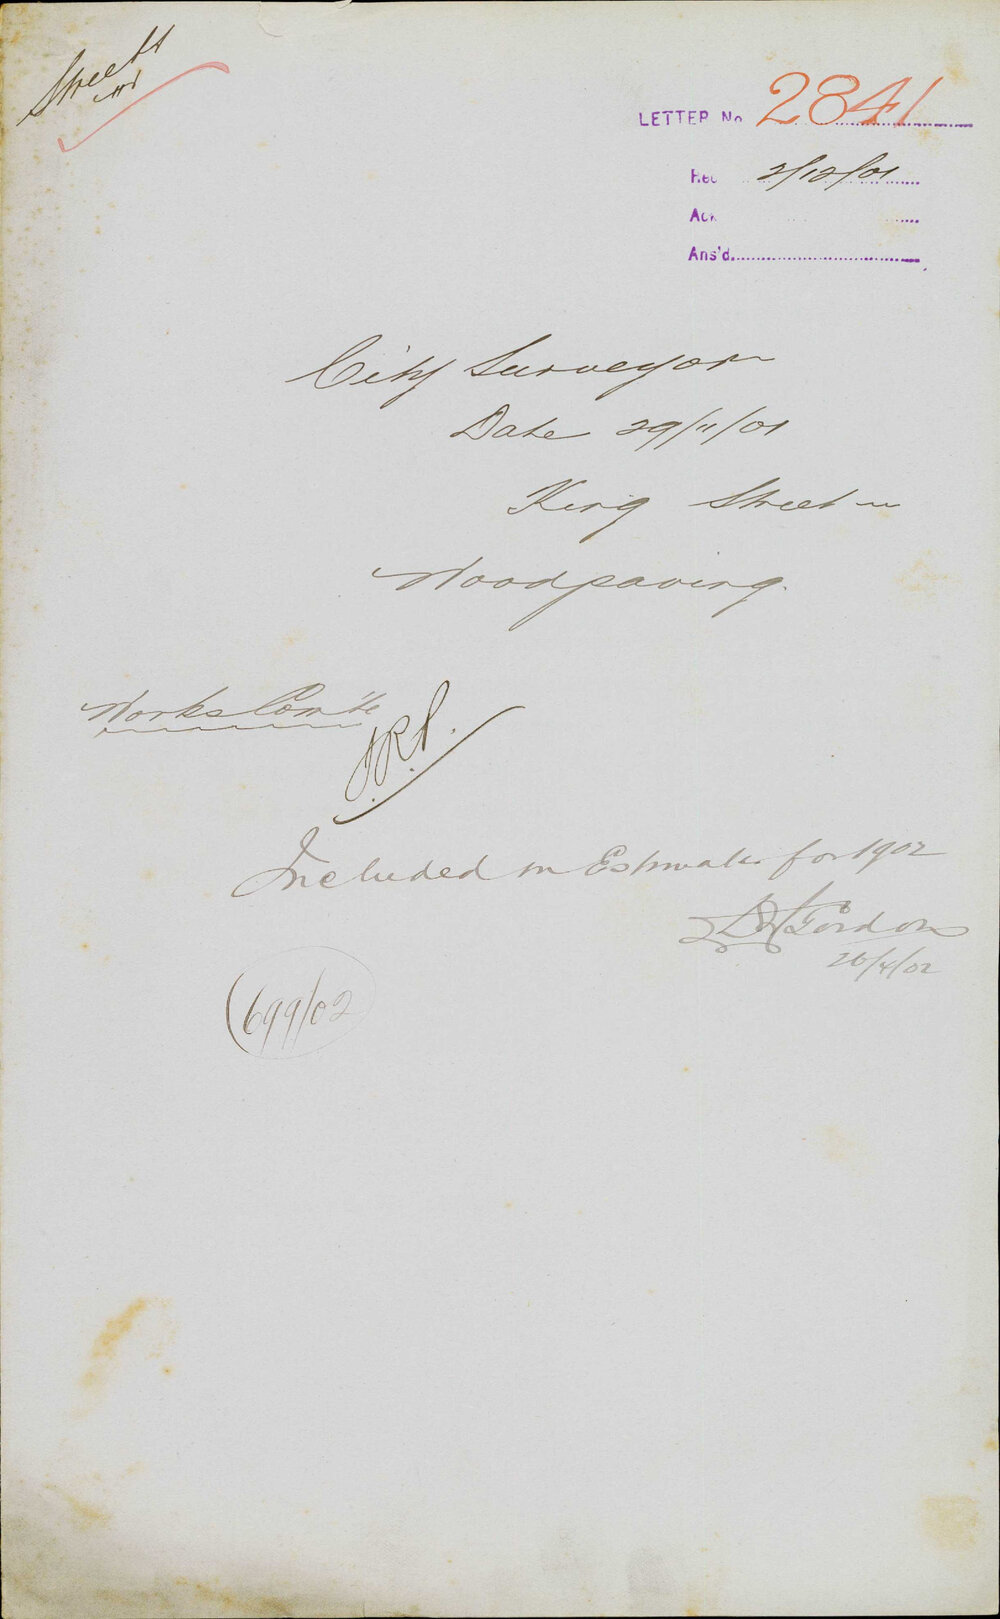 Streets
LETTER No 2841
Rec 2/12/01
Ack
Ans'd
City Surveyor
Date 29/11/01
King Street
Woodpaving.
Works Com'te
J.R.P.
Included in Estimates for 1902
Gordon
26/4/02
699/02